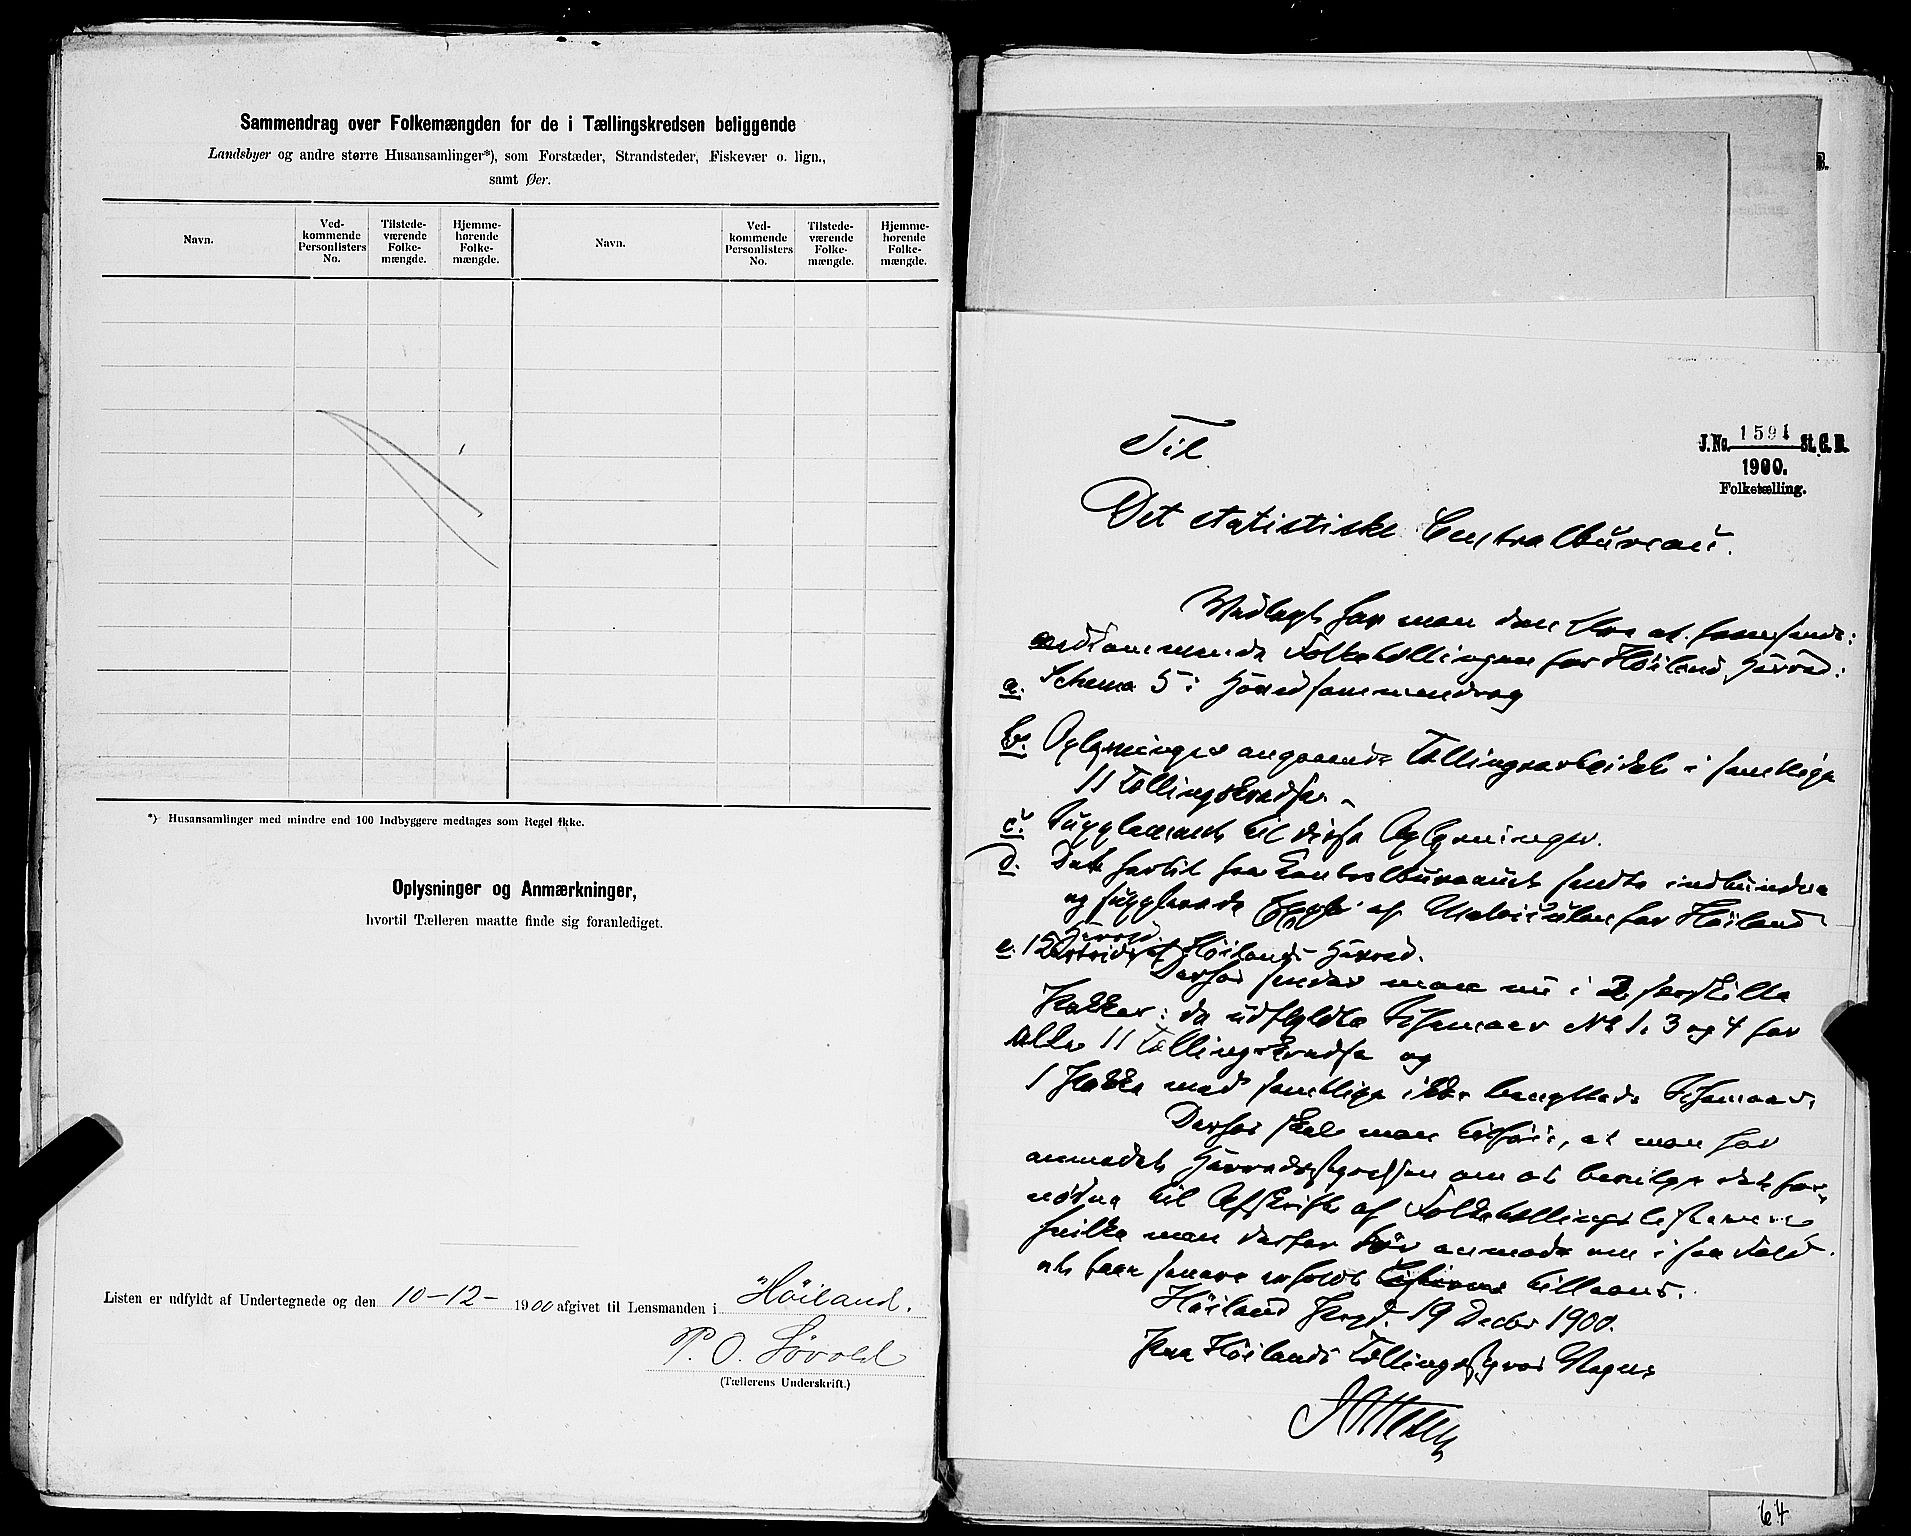 Sammendrag over Folkemængden for de i Tællingskredsen beliggende
Landsbyer og andre større Husansamlinger*), som Forstæder, Strandsteder, Fiskevær o. lign.,
samt Øer.
Navn. Ved-kommende Personlisters No. Tilstede-værende Folke-mængde. Hjemme-hørende Folke-mængde. Navn. Ved-kommende Personlisters No. Tilstede-værende Folke-mængde. Hjemme-hørende Folke-mængde.
*) Husansamlinger med mindre end 100 Indbyggere medtages som Regel ikke.
Oplysninger og Anmærkninger,
hvortil Tælleren maatte finde sig foranlediget.
Listen er udfyldt af Undertegnede og den 10-12- 1900 afgivet til Lensmanden i Höiland.
P. O. Sövold
(Tællerens Underskrift.)
J. No. 1591 St. C. B.
1900.
Folketælling.
Til
Det statistiske Centralbureau.
Vedlagt har man den Ære at fremsende:
vedkommende Folketællingen for Höiland Herred:
a. Schema 5: Hovedsammendrag
b. Oplysninger angaaende Tællingsarbeidet i samtlige
11 Tællingskredse
c. Supplement til disse Oplysninger.
d. Det hertil fra Centralbureauet sendte indbundne
og supplerede af Matriculen for Höiland
Herred.
e. 12 af Höilands Herred.
Derhos sender man nu i 2 særskilte
Pakker: de udfyldte Schemaer No 1, 3 og 4 for
alle 11 Tællingskredse og
1 Pakke med samtlige ikke benyttede Schemaer.
Derhos skal man tilföie, at man har
anmodet Herredsstyrelsen om at bevilge det for-
nödne til Afskrift af Folketællingslisterne
hvilke man derfor bör anmode om i saa Fald
at faae senere erholde tillaans.
Höiland Prgd. 19 Decbr 1900.
Paa Höilands Tællingsstyres Vegne
64